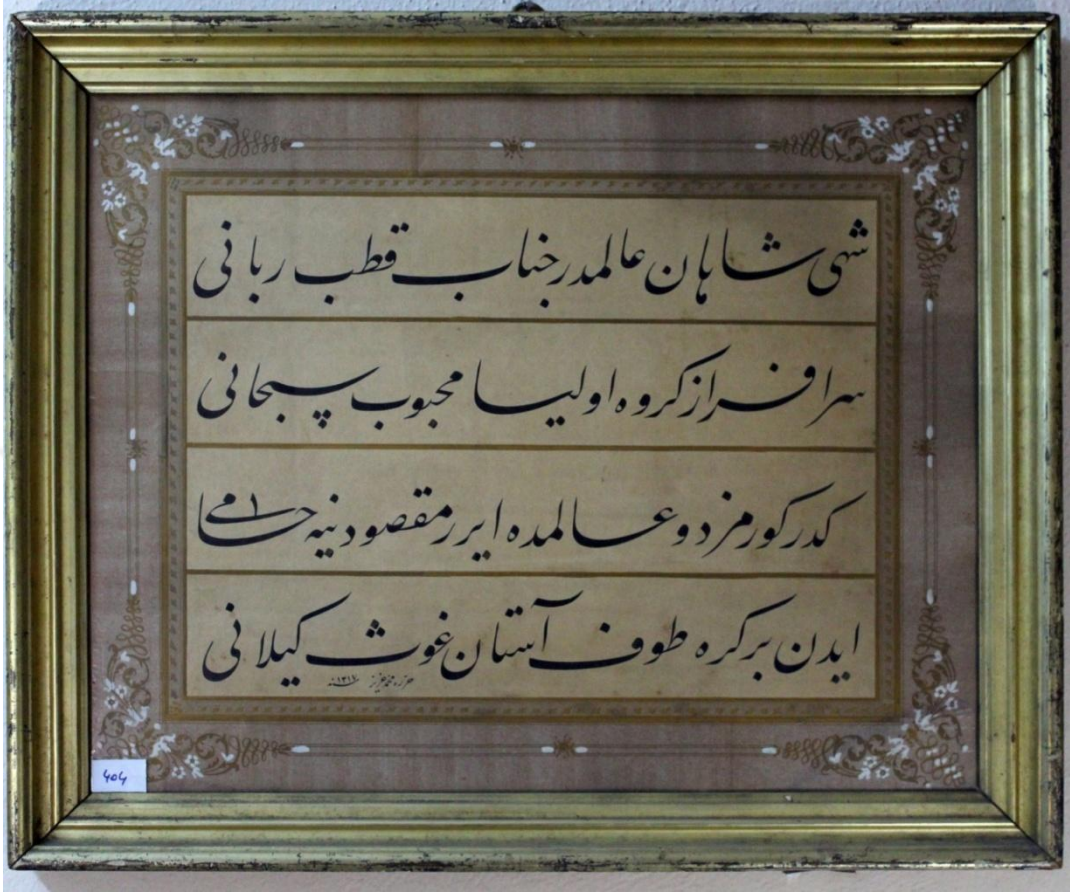 شهی شاهان عالمدر جناب قطب ربانی
سرافراز کروه اولیا محبوب سبحانی
کدر کورمز دو عالمده ایرر مقصودینه
ایدن بر کره طوف آستان غوث کیلانی
حرره محمد عزیز سنه ١٣١٧
404